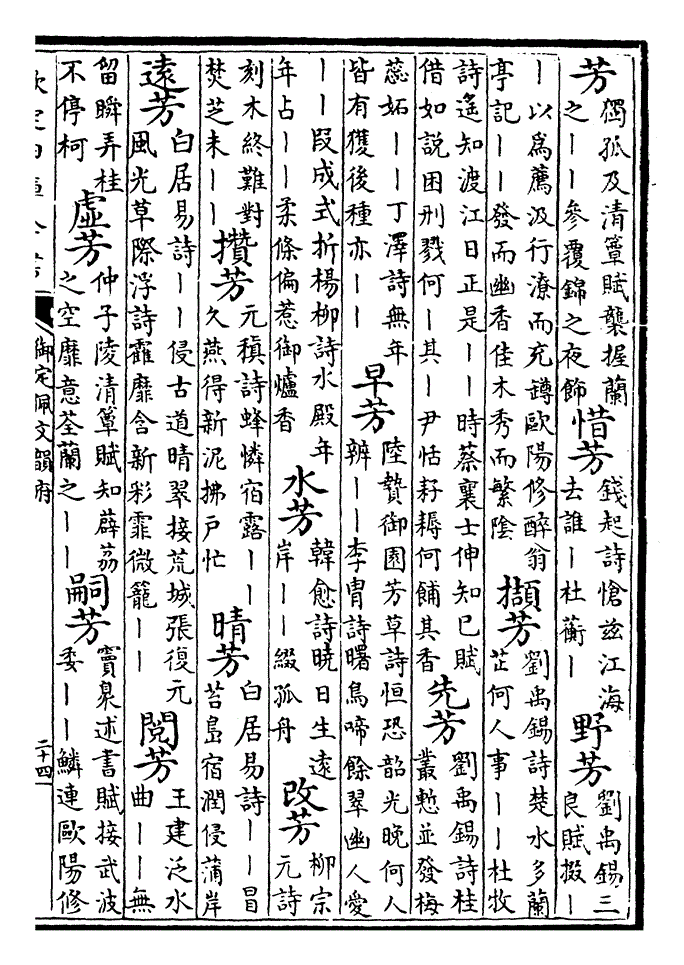 芳
獨孤及清簟賦襲握蘭
之丨丨參覆錦之夜飾
惜芳
錢起詩愴兹江海
去誰丨杜蘅丨
野芳
劉禹錫三
良賦掇丨
丨以爲薦汲行潦而充罇歐陽修醉翁
亭記丨丨發而幽香佳木秀而繁陰
擷芳
劉禹錫詩楚水多蘭
芷何人事丨丨杜牧
詩遙知渡江日正是丨丨時蔡襄士伸知已賦
借如說困刑戮何丨其丨尹恬耔耨何餔其香
先芳
劉禹錫詩桂
叢慙並發梅
蕊妬丨丨丁澤詩無年
皆有獲後種亦丨丨
早芳
陸贄御園芳草詩恒恐韶光晚何人
辨丨丨李胄詩曙鳥啼餘翠幽人愛
丨丨段成式折楊柳詩水殿年
年占丨丨柔條偏惹御爐香
水芳
韓愈詩曉日生遠
岸丨丨綴孤舟
改芳
柳宗
元詩
刻木終難對
焚芝未丨丨
攢芳
元稹詩蜂憐宿露丨丨
久燕得新泥拂戸忙
晴芳
白居易詩丨丨冒
苔島宿潤侵蒲岸
遠芳
白居易詩丨丨侵古道晴翠接荒城張復元
風光草際浮詩靃靡含新彩霏微籠丨丨
閱芳
王建泛水
曲丨丨無
留瞬弄桂
不停柯
虛芳
仲子陵清簟賦知薜荔
之空靡意荃蘭之丨丨
嗣芳
竇臮述書賦接武波
委丨丨鱗連歐陽修
欽定四庫全書
御定佩文韻府
二十四